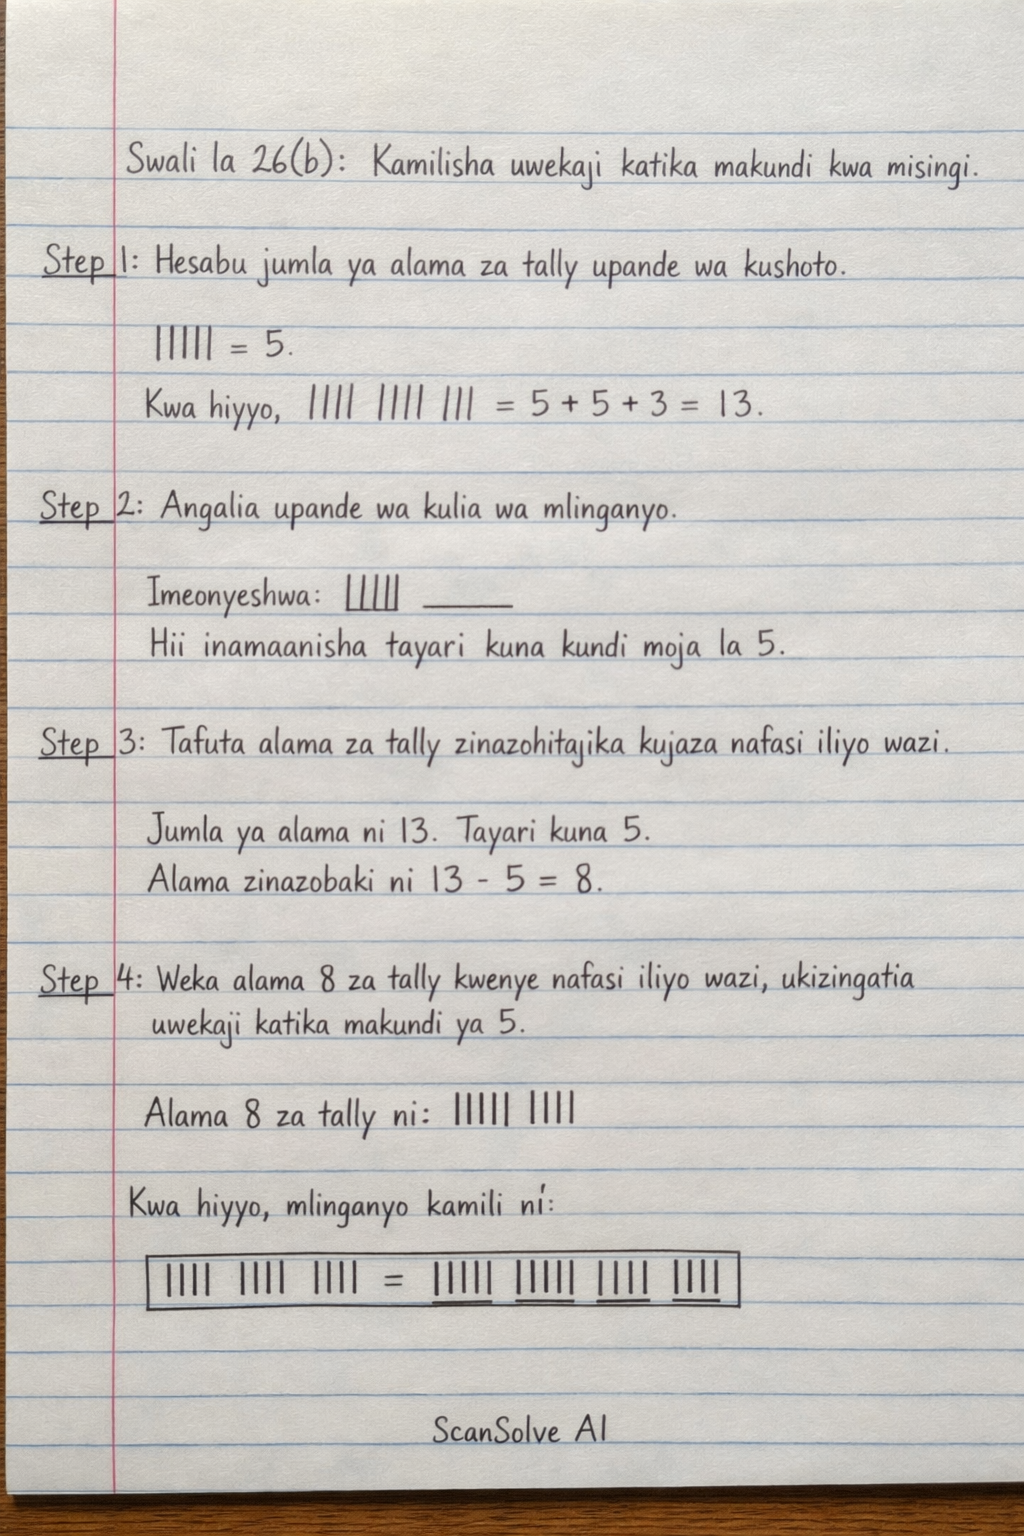 Swali la 26(b): Kamilisha uwekaji katika makundi kwa misingi.
Step 1: Hesabu jumla ya alama za tally upande wa kushoto.
||||| = 5.
Kwa hiyyo, |||| |||| ||| = 5 + 5 + 3 = 13.
Step 2: Angalia upande wa kulia wa mlinganyo.
Imeonyeshwa: ||||| _____
Hii inamaanisha tayari kuna kundi moja la 5.
Step 3: Tafuta alama za tally zinazohitajika kujaza nafasi iliyo wazi.
Jumla ya alama ni 13. Tayari kuna 5.
Alama zinazobaki ni 13 - 5 = 8.
Step 4: Weka alama 8 za tally kwenye nafasi iliyo wazi, ukizingatia
uwekaji katika makundi ya 5.
Alama 8 za tally ni: ||||| ||||
Kwa hiyyo, mlinganyo kamili ni:
|||| |||| |||| = ||||| ||||| |||| ||||
ScanSolve AI